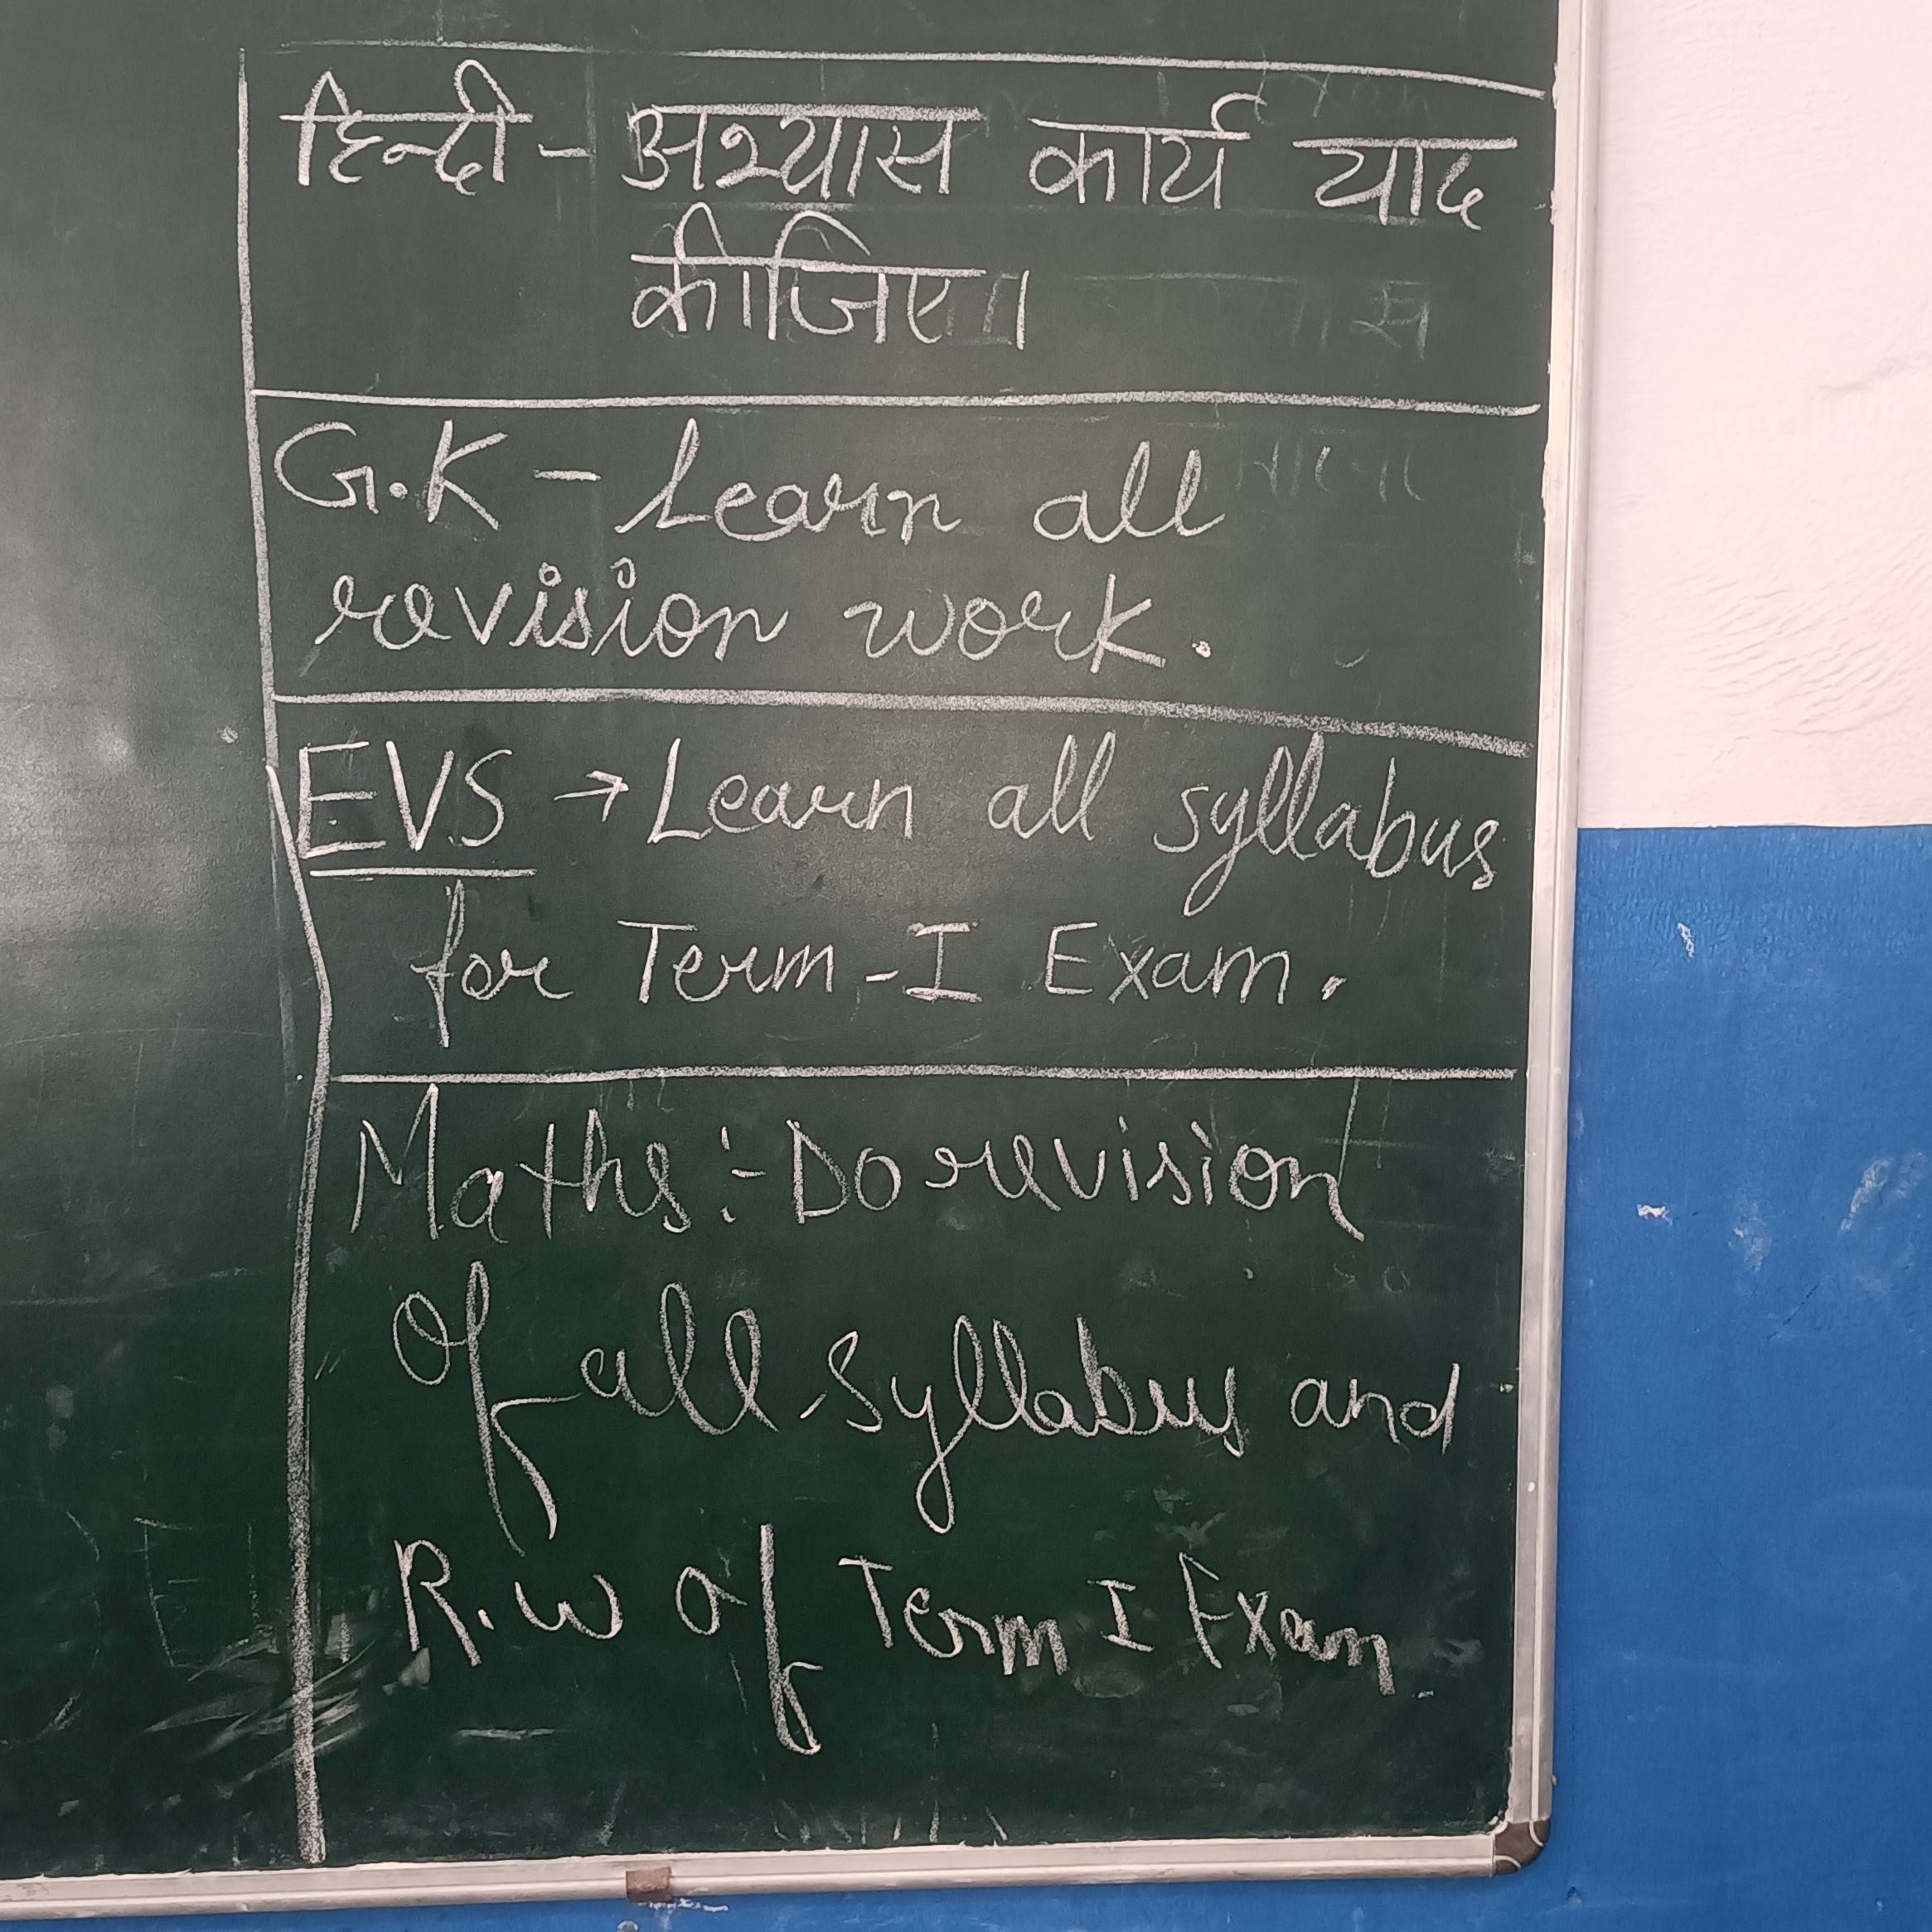 हिन्दी - अभ्यास कार्य याद
कीजिए।
G.K - Learn all
revision work.
EVS → Learn all syllabus
for Term - I Exam.
Maths :- Do revision
Of all syllabus and
R.W of Term I Exam